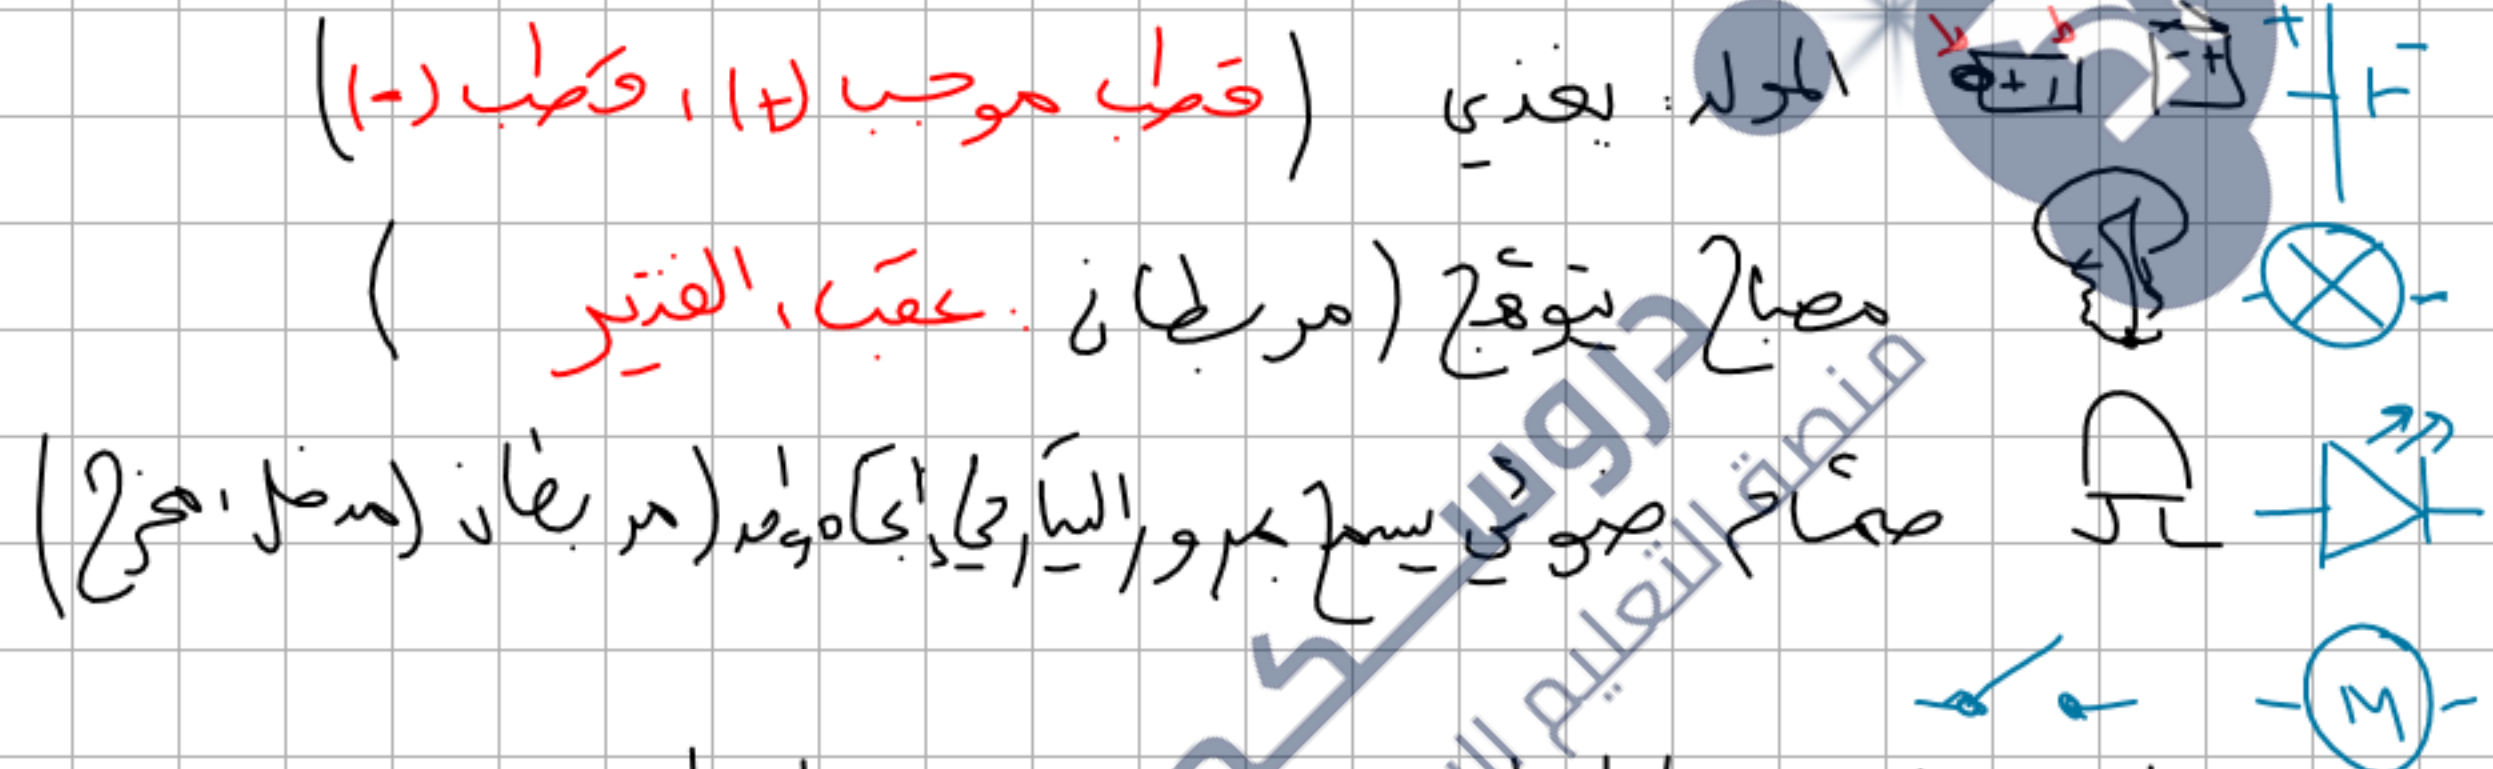 المولد : يغذي (قطب موجب (+) ، قطب (-))
+ -
مصباح توهج (مربطان : عقب ، القتير)
صمام ضوئي يسمح بمرور التيار في اتجاه واحد (مربطان (مدخل ، مخرج)
M
دروس
منصة التعليم